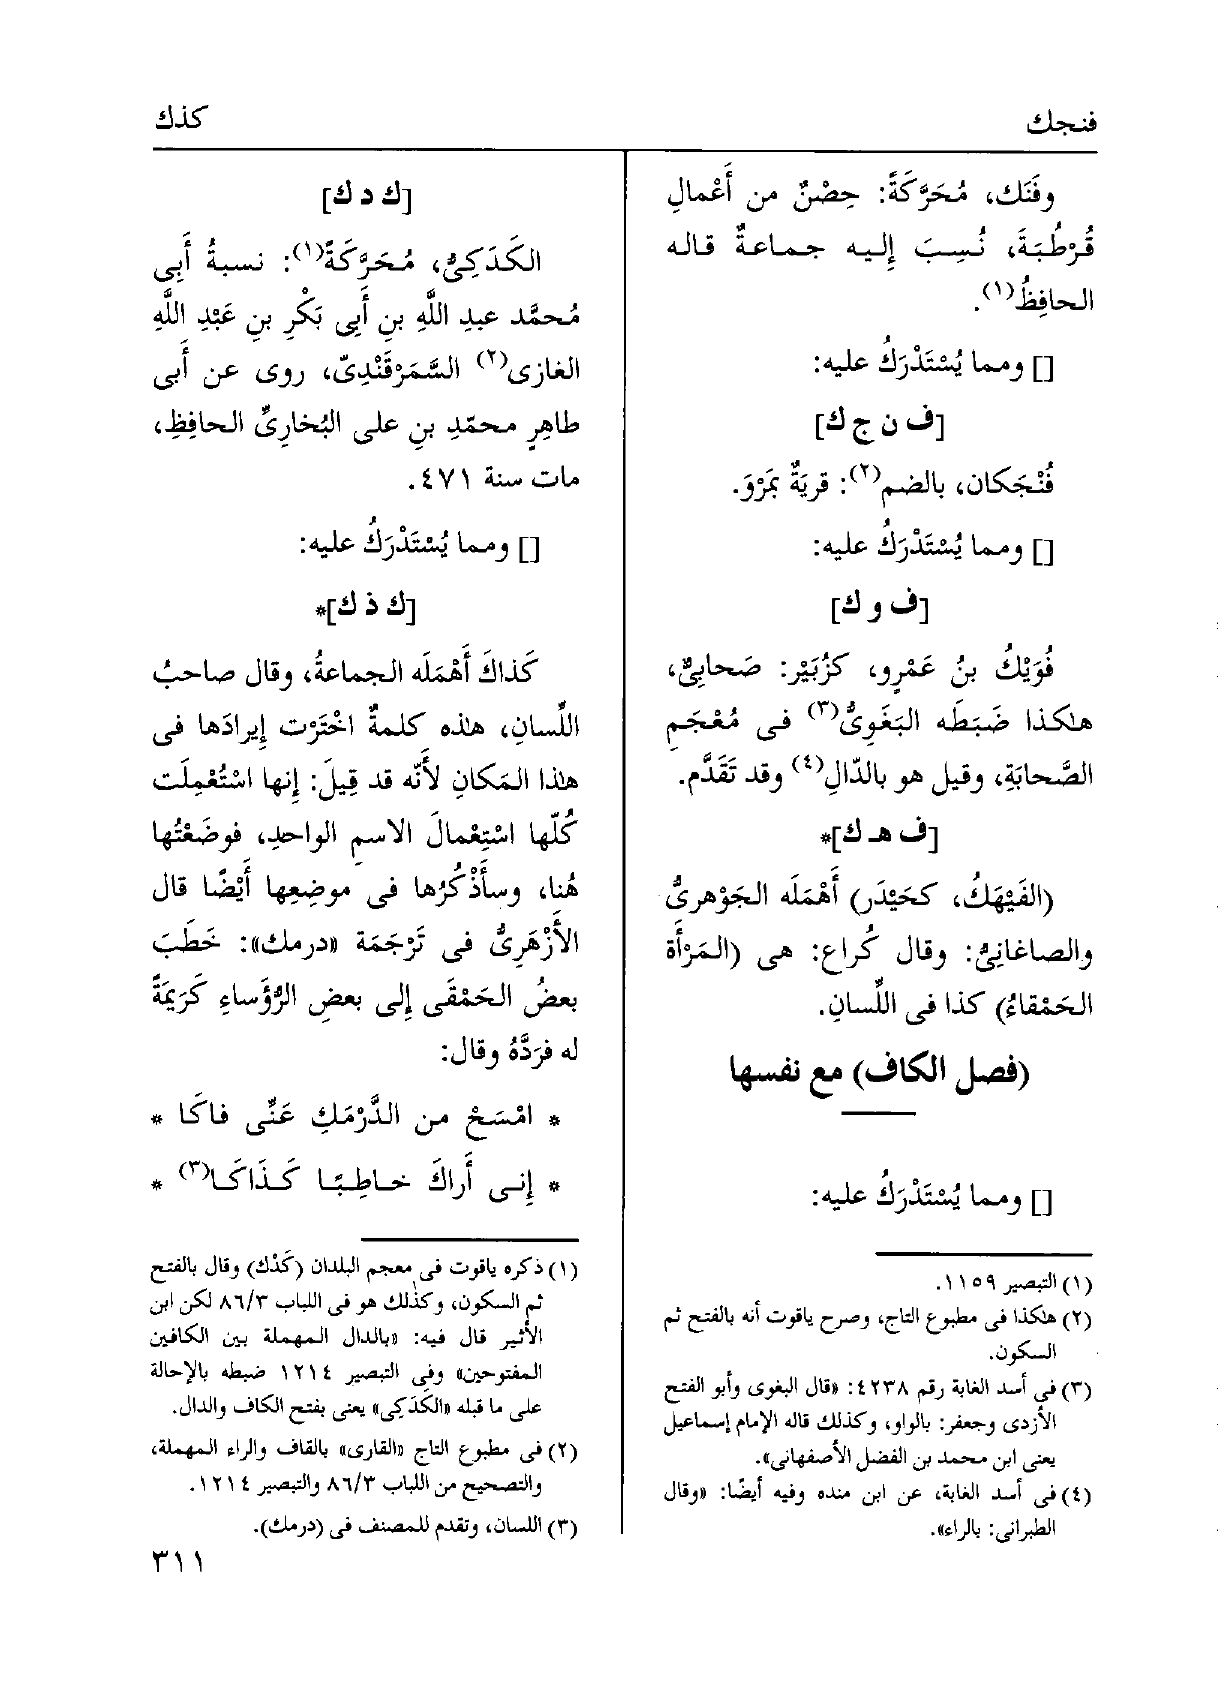 فنجك
كذك
وفَنَك، مُحَرَّكَةً: حِصْنٌ من أَعْمالِ
قُرْطُبَةَ، نُسِبَ إِليه جماعةٌ قاله
الحافِظُ(١).
[] ومما يُسْتَدْرَكُ عليه:
[ف ن ج ك]
فُنْجَكان، بالضم(٢): قريَةٌ بمَرْوَ.
[] ومما يُسْتَدْرَكُ عليه:
[ف و ك]
فُوَيْكُ بنُ عَمْرٍو، كزُبَيْر: صَحابِيٌّ،
هٰكذا ضَبَطَه البَغَوِىُّ(٣) فى مُعْجَمِ
الصَّحابَةِ، وقيل هو بالدّالِ(٤) وقد تَقَدَّم.
[ف هـ ك]*
(الفَيْهَكُ، كحَيْدَر) أَهْمَلَه الجَوْهرىُّ
والصاغانِىُّ: وقال كُراع: هى (المَرْأَة
الحَمْقاءُ) كذا فى اللِّسانِ.
(فصل الكاف) مع نفسها
[] ومما يُسْتَدْرَكُ عليه:
(١) التبصير ١١٥٩.
(٢) هٰكذا فى مطبوع التاج، وصرح ياقوت أنه بالفتح ثم
السكون.
(٣) فى أسد الغابة رقم ٤٢٣٨: «قال البغوى وأبو الفتح
الأزدى وجعفر: بالواو، وكذلك قاله الإمام إسماعيل
يعنى ابن محمد بن الفضل الأصفهانى».
(٤) فى أسد الغابة، عن ابن منده وفيه أيضًا: «وقال
الطبرانى: بالراء».
[ك د ك]
الكَدَكِىُّ، مُحَرَّكَةً(١): نسبةُ أَبِى
مُحمَّد عبدِ اللَّهِ بنِ أَبِى بَكْرِ بنِ عَبْدِ اللَّهِ
الغازى(٢) السَّمَرْقَنْدِىّ، روى عن أَبى
طاهِرٍ محمّدِ بنِ على البُخارِىِّ الحافِظِ،
مات سنة ٤٧١.
[] ومما يُسْتَدْرَكُ عليه:
[ك ذ ك]*
كَذاكَ أَهْمَلَه الجماعةُ، وقال صاحبُ
اللِّسانِ، هٰذه كلمةٌ اخْتَرْت إِيرادَها فى
هٰذا المَكانِ لأَنّه قد قِيلَ: إِنها اسْتُعْمِلَت
كُلّها اسْتِعْمالَ الاسمِ الواحدِ، فوضَعْتُها
هُنا، وسأَذْكُرُها فى موضِعِها أَيْضًا قال
الأَزْهَرِىُّ فى تَرْجَمَة «درمك»: خَطَبَ
بعضُ الحَمْقَى إِلى بعضِ الرُّؤَساءِ كَرِيمَةً
له فرَدَّهُ وقال:
* امْسَحْ من الدَّرْمَكِ عَنِّى فاكَا *
* إِنى أَراكَ خاطِبًا كَذَاكَا(٣) *
(١) ذكره ياقوت فى معجم البلدان (كَدْك) وقال بالفتح
ثم السكون، وكذلك هو فى اللباب ٨٦/٣ لكن ابن
الأثير قال فيه: «بالدال المهملة بين الكافين
المفتوحين» وفى التبصير ١٢١٤ ضبطه بالإحالة
على ما قبله «الكَدَكِى» يعنى بفتح الكاف والدال.
(٢) فى مطبوع التاج «القارى» بالقاف والراء المهملة،
والتصحيح من اللباب ٨٦/٣ والتبصير ١٢١٤.
(٣) اللسان، وتقدم للمصنف فى (درمك).
٣١١